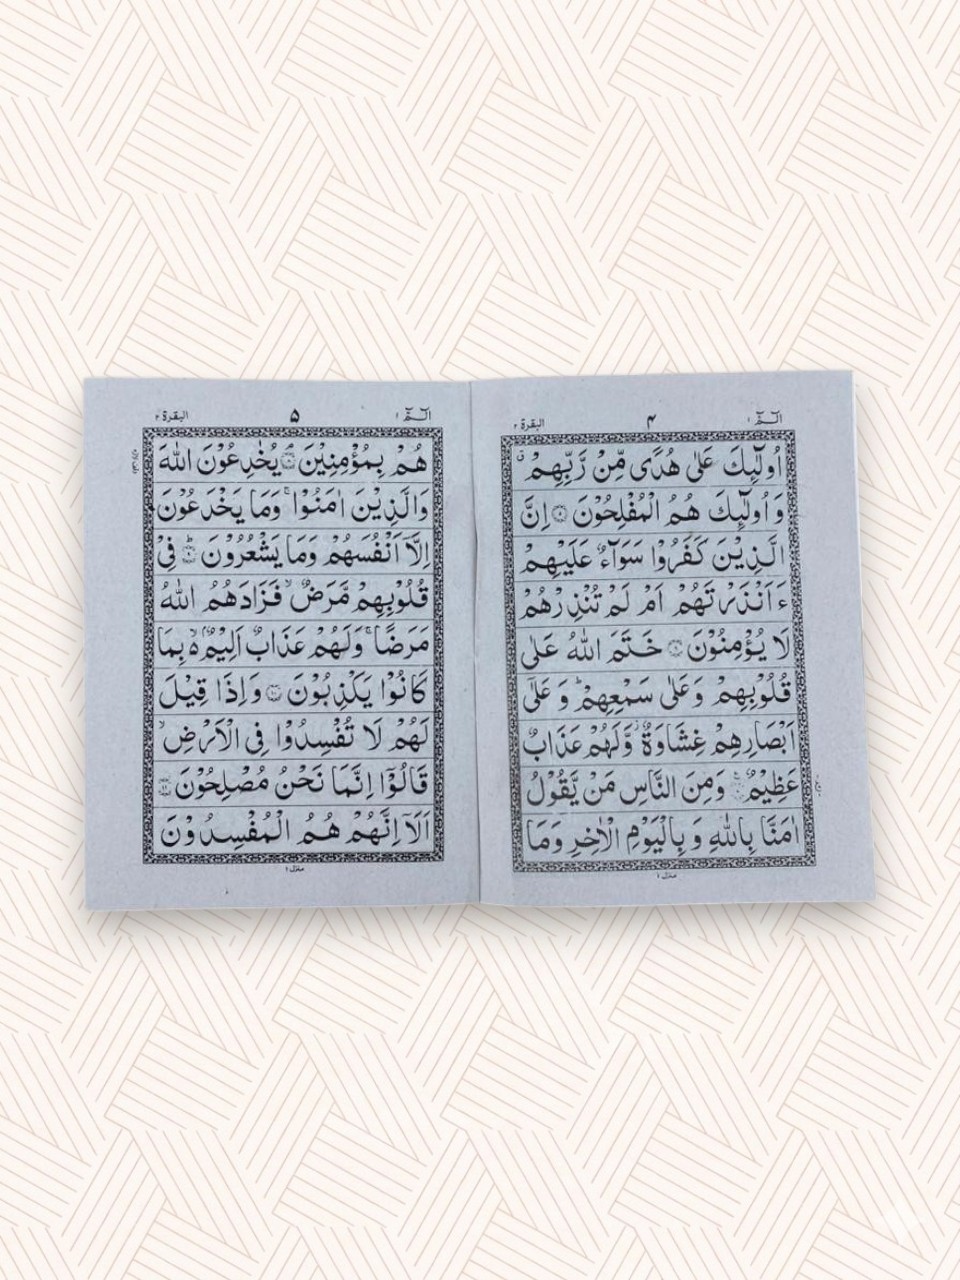 الٓمّٓ ١
۴
البقرة ٢
اُولٰٓئِكَ عَلٰى هُدًى مِّنْ رَّبِّهِمْ ۙ
وَاُولٰٓئِكَ هُمُ الْمُفْلِحُوْنَ ۝ اِنَّ
الَّذِيْنَ كَفَرُوْا سَوَآءٌ عَلَيْهِمْ
ءَاَنْذَرْتَهُمْ اَمْ لَمْ تُنْذِرْهُمْ
لَا يُؤْمِنُوْنَ ۝ خَتَمَ اللّٰهُ عَلٰى
قُلُوْبِهِمْ وَعَلٰى سَمْعِهِمْ ؕ وَعَلٰٓى
اَبْصَارِهِمْ غِشَاوَةٌ ؗ وَّلَهُمْ عَذَابٌ
عَظِيْمٌ ۝ وَمِنَ النَّاسِ مَنْ يَّقُوْلُ
اٰمَنَّا بِاللّٰهِ وَ بِالْيَوْمِ الْاٰخِرِ وَمَا
منزل ١
الٓمّٓ ١
۵
البقرة ٢
هُمْ بِمُؤْمِنِيْنَ ۘ يُخٰدِعُوْنَ اللّٰهَ
وَالَّذِيْنَ اٰمَنُوْا ۚ وَمَا يَخْدَعُوْنَ
اِلَّاۤ اَنْفُسَهُمْ وَمَا يَشْعُرُوْنَ ؕ فِيْ
قُلُوْبِهِمْ مَّرَضٌ ۙ فَزَادَهُمُ اللّٰهُ
مَرَضًا ۚ وَلَهُمْ عَذَابٌ اَلِيْمٌۢ ۙ۬ بِمَا
كَانُوْا يَكْذِبُوْنَ ۝ وَاِذَا قِيْلَ
لَهُمْ لَا تُفْسِدُوْا فِى الْاَرْضِ ۙ
قَالُوْۤا اِنَّمَا نَحْنُ مُصْلِحُوْنَ ۝
اَلَاۤ اِنَّهُمْ هُمُ الْمُفْسِدُوْنَ
منزل ١